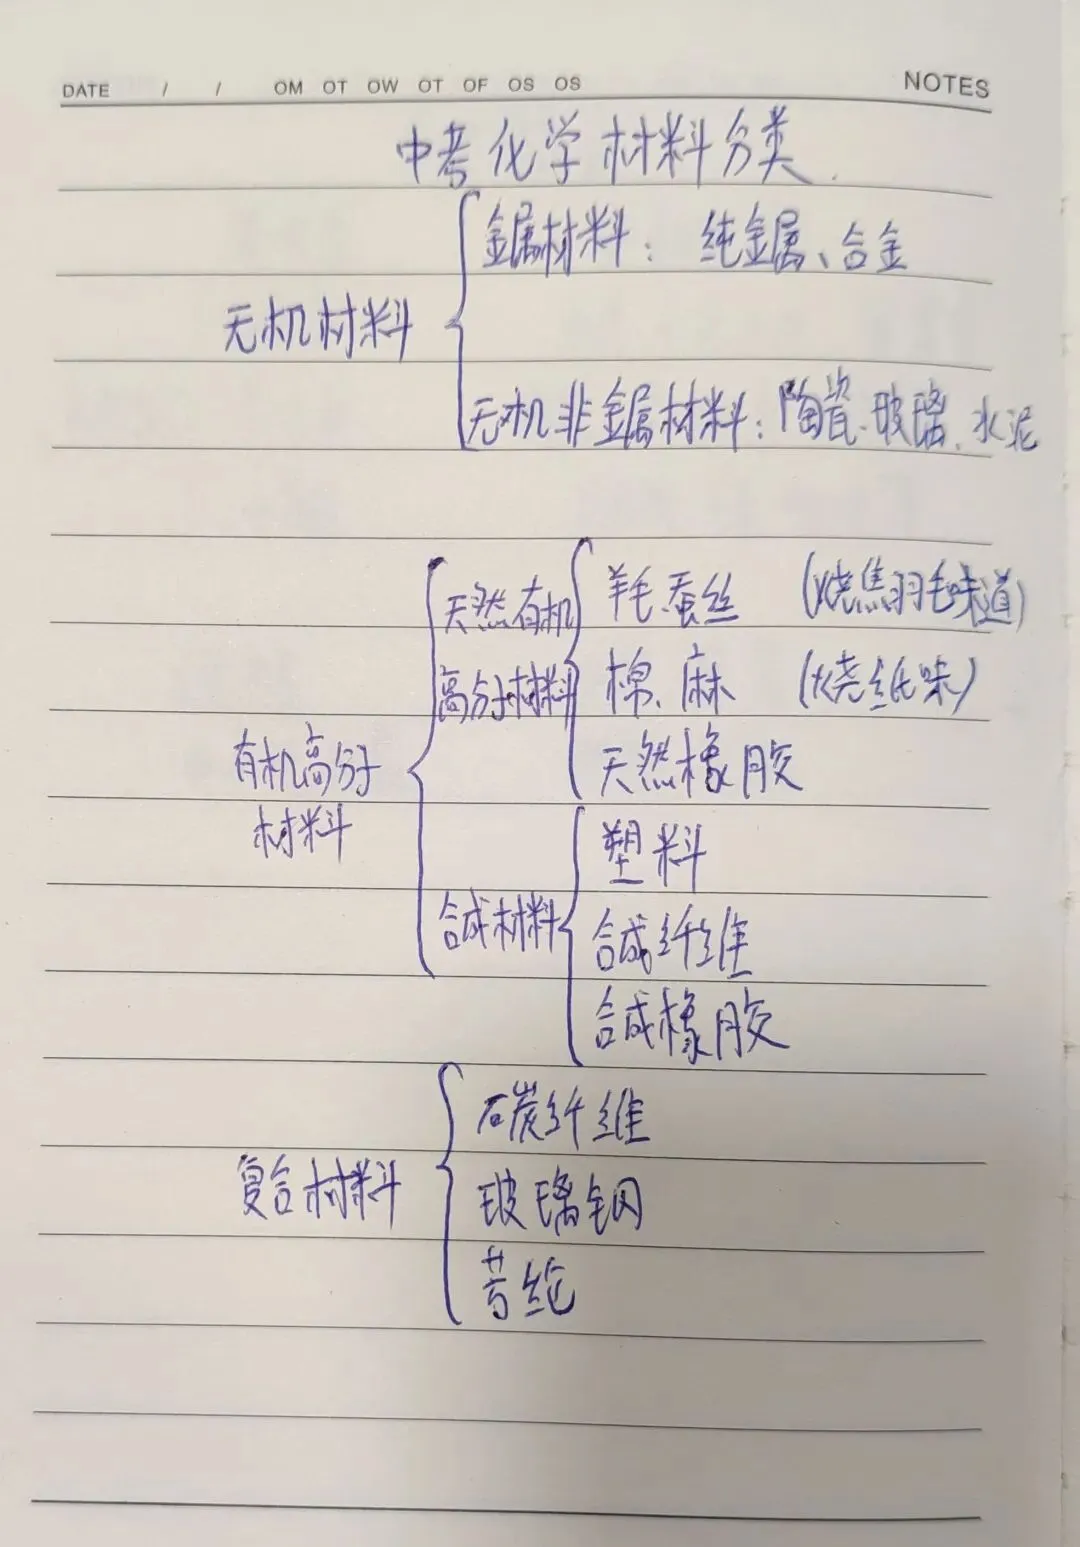 DATE / / OM OT OW OT OF OS OS NOTES
中考化学材料分类
金属材料：纯金属、合金
无机材料
无机非金属材料：陶瓷、玻璃、水泥
天然有机
高分子材料
羊毛、蚕丝 (烧焦羽毛味道)
棉、麻 (烧纸味)
天然橡胶
有机高分子
材料
塑料
合成材料
合成纤维
合成橡胶
碳纤维
复合材料
玻璃钢
芳纶